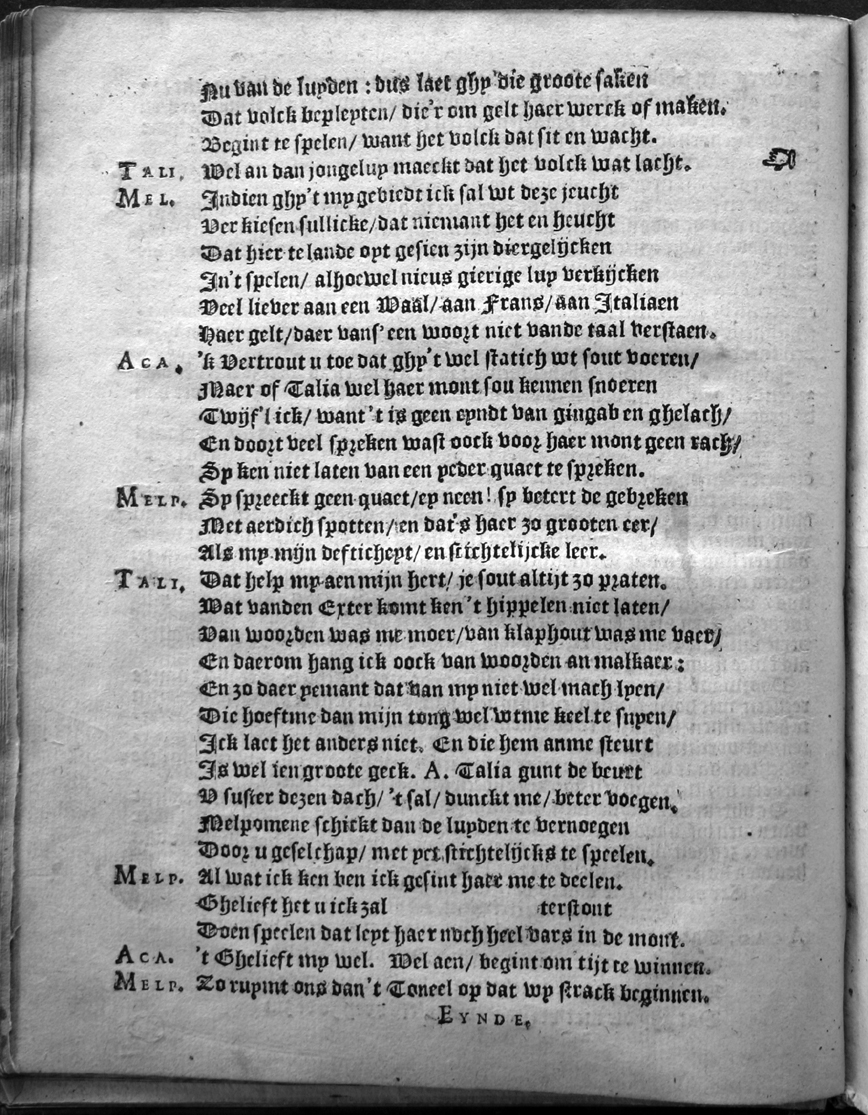 Nu van de luyden : dus laet ghy die groote saken
Dat volck bepleyten/ die'r om gelt haer werck of maken.
Begint te spelen/ want het volck dat sit en wacht.
TALI. Wel an dan jongeluy maeckt dat het volck wat lacht.
MEL. Indien ghy't my gebiedt ick sal wt deze jeucht
Verkiesen sullicke/dat niemant het en heucht
Dat hier te lande oyt gesien zijn diergelijcken
In't spelen/ alhoewel nieus gierige luy verkijcken
Veel liever aan een Waal/aan Frans/aan Italiaen
Haer gelt/daer vans' een woort niet vande taal verstaen.
ACA. 'k Vertrout u toe dat ghy't wel statich wt sout voeren/
Maer of Talia wel haer mont sou kennen snoeren
Twijf'l ick/ want 't is geen eyndt van gingab en ghelach/
En doort veel spreken wast oock voor haer mont geen rach/
Sy ken niet laten van een yeder quaet te spreken.
MELP. Sy spreeckt geen quaet/ey neen! sy betert de gebreken
Met aerdich spotten/en dat's haer zo grooten eer/
Als my mijn defticheyt/ en stichtelijcke leer.
TALI. Dat help my aen mijn hert/ je sout altijt zo praten.
Wat vanden Exter komt ken 't hippelen niet laten/
Van woorden was me moer/van klaphout was me vaer/
En daerom hang ick oock van woorden an malkaer :
En zo daer yemant dat van my niet wel mach lyen/
Die hoeftme dan mijn tong wel wtme keel te snyen/
Ick laet het anders niet. En die hem anme steurt
Is wel ien groote geck. A. Talia gunt de beurt
V suster dezen dach/ 't sal/ dunckt me/ beter voegen.
Melpomene schickt dan de luyden te vernoegen
Door u geselchap/ met yet stichtelijcks te speelen.
MELP. Al wat ick ken ben ick gesint haer me te deelen.
Ghelieft het u ick zal terstont
Doen speelen dat leyt haer noch heel vars in de mont.
ACA. 't Ghelieft my wel. Wel aen/ begint om tijt te winnen.
MELP. Zo ruymt ons dan 't Toneel op dat wy strack beginnen.
EYNDE.